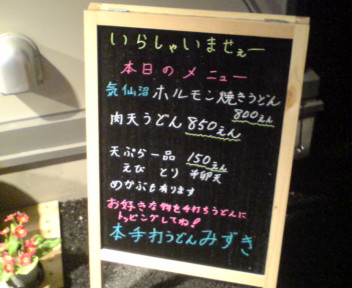 いらしゃいませぇー
本日のメニュー
気仙沼ホルモン焼きうどん
800えん
肉天うどん 850えん
天ぷら一品 150えん
えび とり 半卵天
めかぶも有ります
お好きな物を手打ちうどんに
トッピングしてね!
本手打うどん みずき